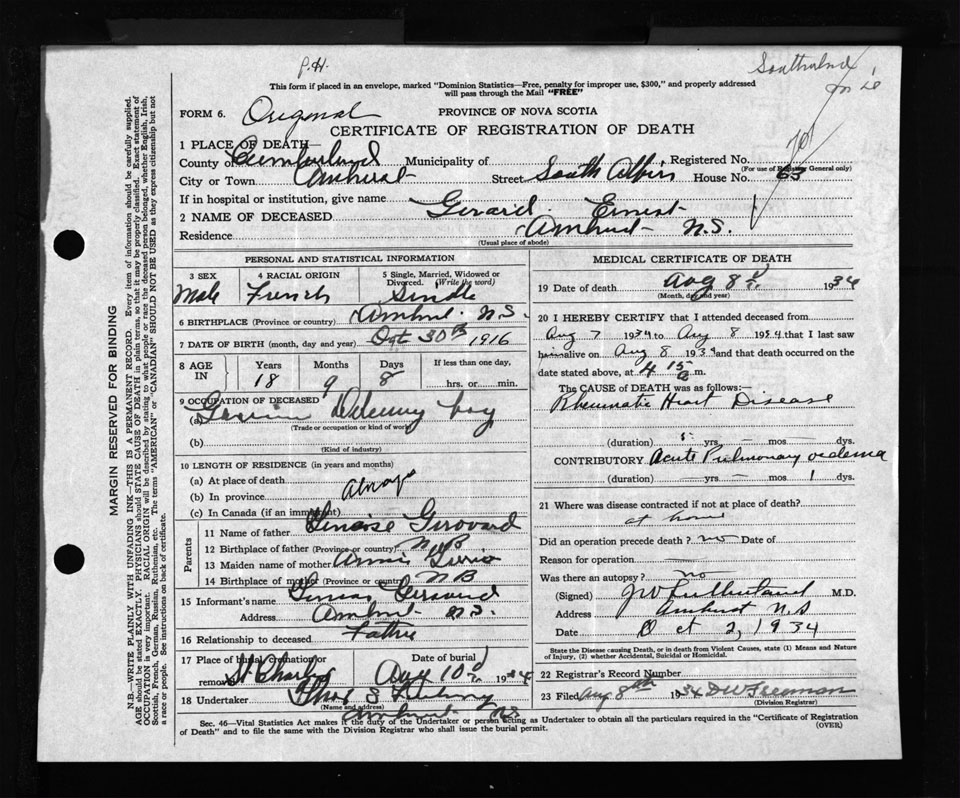 P.H.
This form if placed in an envelope, marked "Dominion Statistics—Free, penalty for improper use, $300," and properly addressed
will pass through the Mail "FREE"
FORM 6. Original
PROVINCE OF NOVA SCOTIA
CERTIFICATE OF REGISTRATION OF DEATH
1 PLACE OF DEATH—
County of Cumberland Municipality of Registered No.
(For use of Registrar General only)
City or Town Amherst Street South Albion House No. 65
If in hospital or institution, give name
2 NAME OF DECEASED Gerard Ernest
Residence Amherst N.S.
(Usual place of abode)
PERSONAL AND STATISTICAL INFORMATION
3 SEX Male
4 RACIAL ORIGIN French
5 Single, Married, Widowed or Divorced. (Write the word) Single
6 BIRTHPLACE (Province or country) Amherst N.S.
7 DATE OF BIRTH (month, day and year) Oct 30th 1916
8 AGE IN Years Months Days If less than one day,
18 9 8 hrs. or min.
9 OCCUPATION OF DECEASED
(a) Delivery boy
(Trade or occupation or kind of work)
(b)
(Kind of industry)
10 LENGTH OF RESIDENCE (in years and months)
(a) At place of death
(b) In province Always
(c) In Canada (if an immigrant)
Parents
11 Name of father
12 Birthplace of father (Province or country) N B
13 Maiden name of mother Annie
14 Birthplace of mother (Province or country) N B
15 Informant's name
Address Amherst N.S.
16 Relationship to deceased Father
17 Place of burial, cremation, removal St Charles Date of burial Aug 10th 1934
18 Undertaker Chas S
(Name and address) Amherst N.S.
MEDICAL CERTIFICATE OF DEATH
19 Date of death Aug 8th 1934
(Month, day and year)
20 I HEREBY CERTIFY that I attended deceased from
Aug 7 1934 to Aug 8 1934 that I last saw
him alive on Aug 8 1934 and that death occurred on the
date stated above, at 4 15 a m.
The CAUSE OF DEATH was as follows:—
Rheumatic Heart Disease
(duration) 5 yrs. — mos — dys.
CONTRIBUTORY Acute Pulmonary oedema
(duration) — yrs. — mos 1 dys.
21 Where was disease contracted if not at place of death?
at home
Did an operation precede death? no Date of
Reason for operation
Was there an autopsy? no
(Signed) J W Sutherland M.D.
Address Amherst N.S
Date Oct 2, 1934
State the Disease causing Death, or in death from Violent Causes, state (1) Means and Nature
of Injury, (2) whether Accidental, Suicidal or Homicidal.
22 Registrar's Record Number
23 Filed Aug 8th 1934 D W Freeman
(Division Registrar)
Sec. 46—Vital Statistics Act makes it the duty of the Undertaker or person acting as Undertaker to obtain all the particulars required in the "Certificate of Registration
of Death" and to file the same with the Division Registrar who shall issue the burial permit.
(OVER)
MARGIN RESERVED FOR BINDING
N.B.—WRITE PLAINLY WITH UNFADING INK—THIS IS A PERMANENT RECORD. Every item of information should be carefully supplied.
AGE should be stated EXACTLY. PHYSICIANS should STATE CAUSE OF DEATH in plain terms, so that it may be properly classified. Exact statement of
OCCUPATION is very important. RACIAL ORIGIN will be described by stating to what people or race the deceased person belonged, whether English, Irish,
Scottish, French, German, Russian, Ruthenian, etc. The terms "AMERICAN" or "CANADIAN" SHOULD NOT BE USED as they express citizenship but not
a race or people. See instructions on back of certificate.